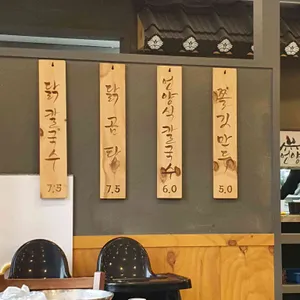 닭칼국수
7.5
닭곰탕
7.5
언양식칼국수
6.0
쫄깃만두
5.0
언양